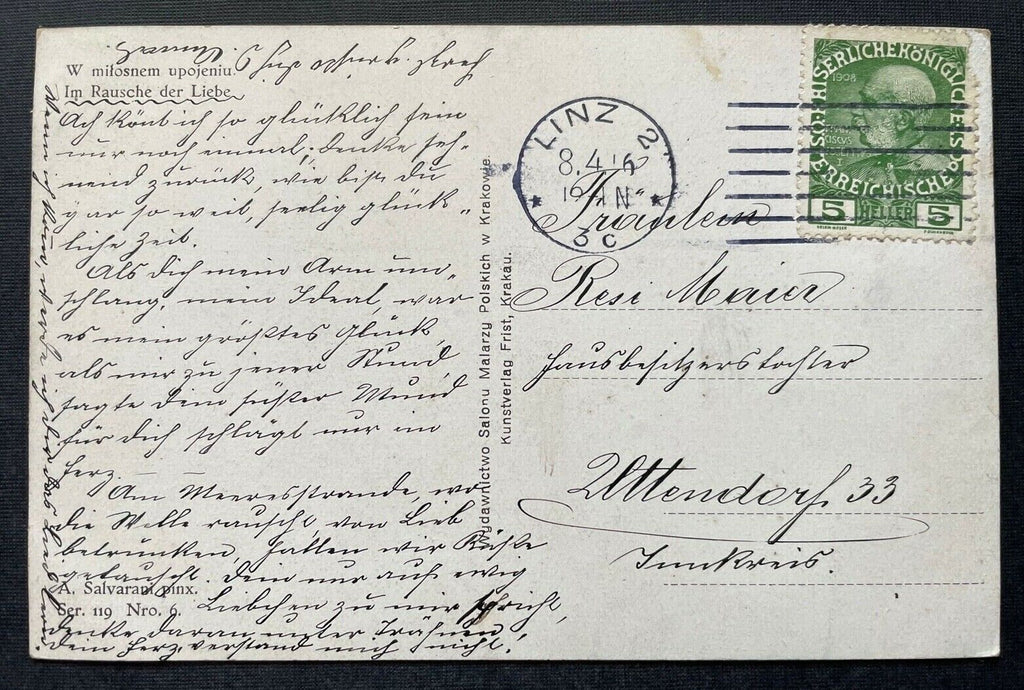 W miłosnem upojeniu.
Im Rausche der Liebe
Ach könnt ich so glücklich sein
nur noch einmal, denke seh-
nend zurück, wie bist du
gar so weit, seelig glück-
liche Zeit.
Als dich mein Arm um-
schlang, mein Ideal, war
es mein größtes Glück,
als mir zu jener Stund,
sagte dein süßer Mund
für dich schlägt nur ein
Herz — —
Am Meeresstrande, wo
die Welle rauscht von Lieb
betrunken, hatten wir Küße
getauscht. Dein nur auf ewig
A. Salvarani pinx.
Liebchen zu mir spricht,
Ser. 119 Nro. 6.
denke daran unter Tränen,
dein Herz verstand mich nicht!
Wydawnictwo Salonu Malarzy Polskich w Krakowie.
Kunstverlag Frist, Krakau.
LINZ 2
8.4.16
3c
KAISERLICHE KÖNIGLICHE
ÖSTERREICHISCHE POST
1908
5 HELLER 5
Fräulein
Resi Maier
Hausbesitzerstochter
Uttendorf 33
Innkreis.